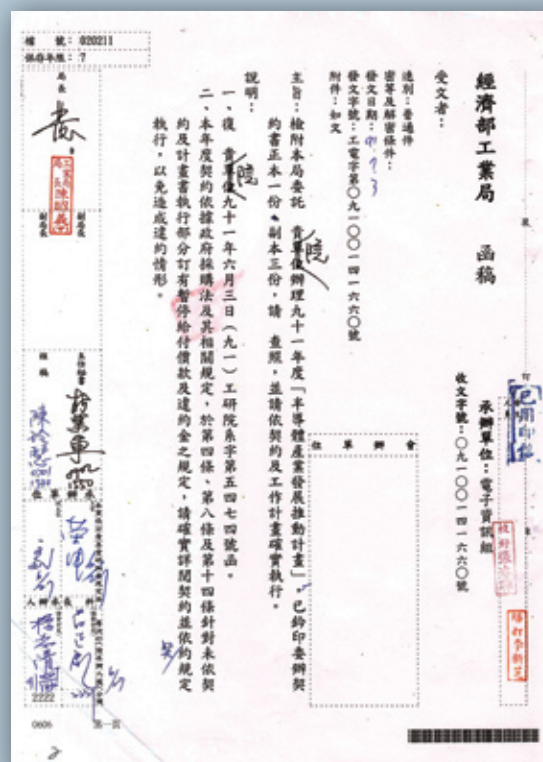 檔　號：020211
保存年限：7
經濟部工業局　函稿
承辦單位：電子資訊組
收文字號：〇九一〇〇一四一六六〇號
受文者：
速別：普通件
密等及解密條件：
發文日期：91.7.3
發文字號：工電字第〇九一〇〇一四一六六〇號
附件：如文
會辦單位
主旨：檢附本局委託　貴單位辦理九十一年度「半導體產業發展推動計畫」，已鈐印委辦契
約書正本一份、副本三份，請　查照，並請依契約及工作計畫確實執行。
院
說明：
一、復　貴單位九十一年六月三日（九一）工研院系字第五四七四號函。
院
二、本年度契約依據政府採購法及其相關規定，於第四條、第八條及第十四條針對未依契
約及計畫書執行部分訂有暫停給付價款及違約金之規定，請確實詳閱契約並依約規定
執行，以免造成違約情形。
局長
副局長
副局長
主任秘書
核稿
承辦單位
承辦人
2222
0606
第一頁
2
裝
訂
已用印信